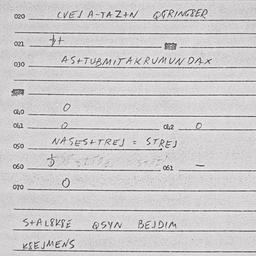 020 CVEJ A-TAZ+N QGRINGBER
021 $+
030 AS+TUBMITAKRUMUNDAX
040 0
041 0 042 0
050 NASES+TREJ = STREJ
060 $ 061 -
070 0
S+AL8K8E QSYN BEJDIM
K8EJMENS